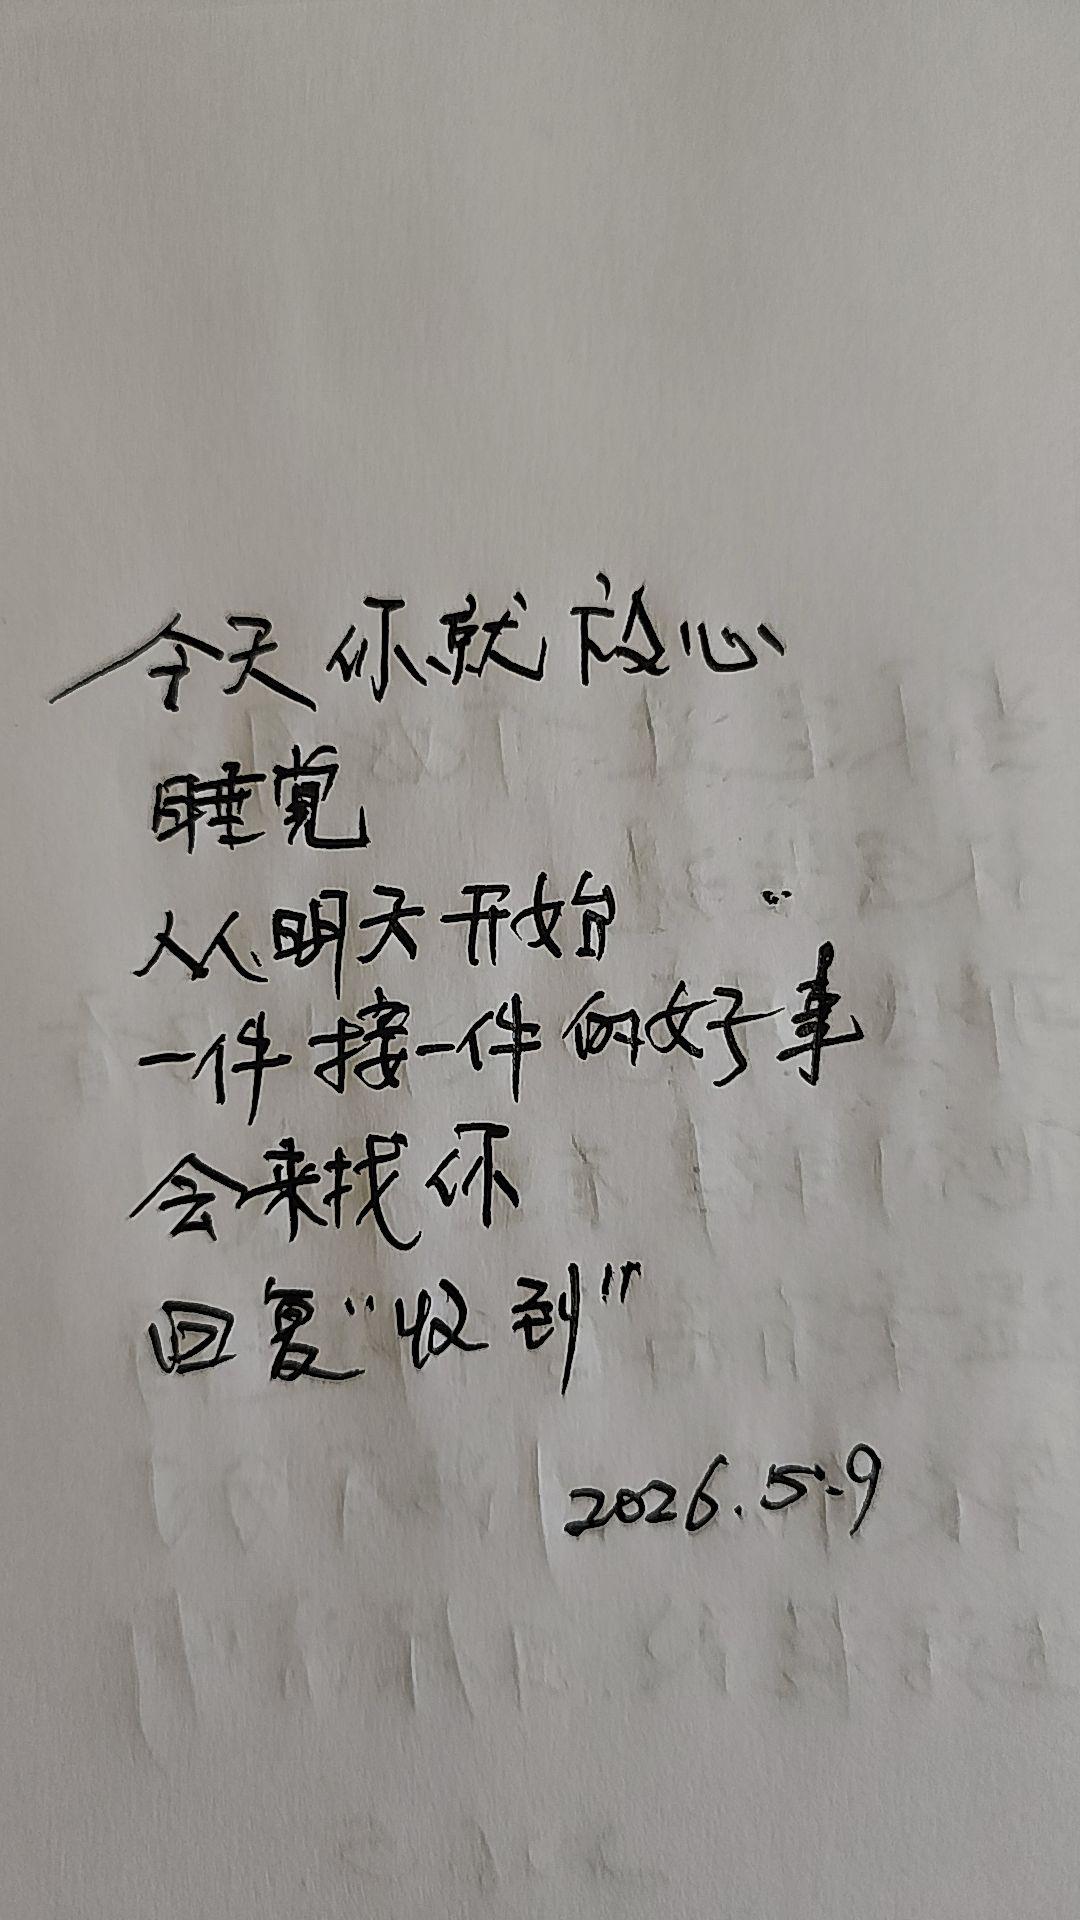 今天你就放心
睡觉
从明天开始
一件接一件的好事
会来找你
回复“收到”
2026.5.9